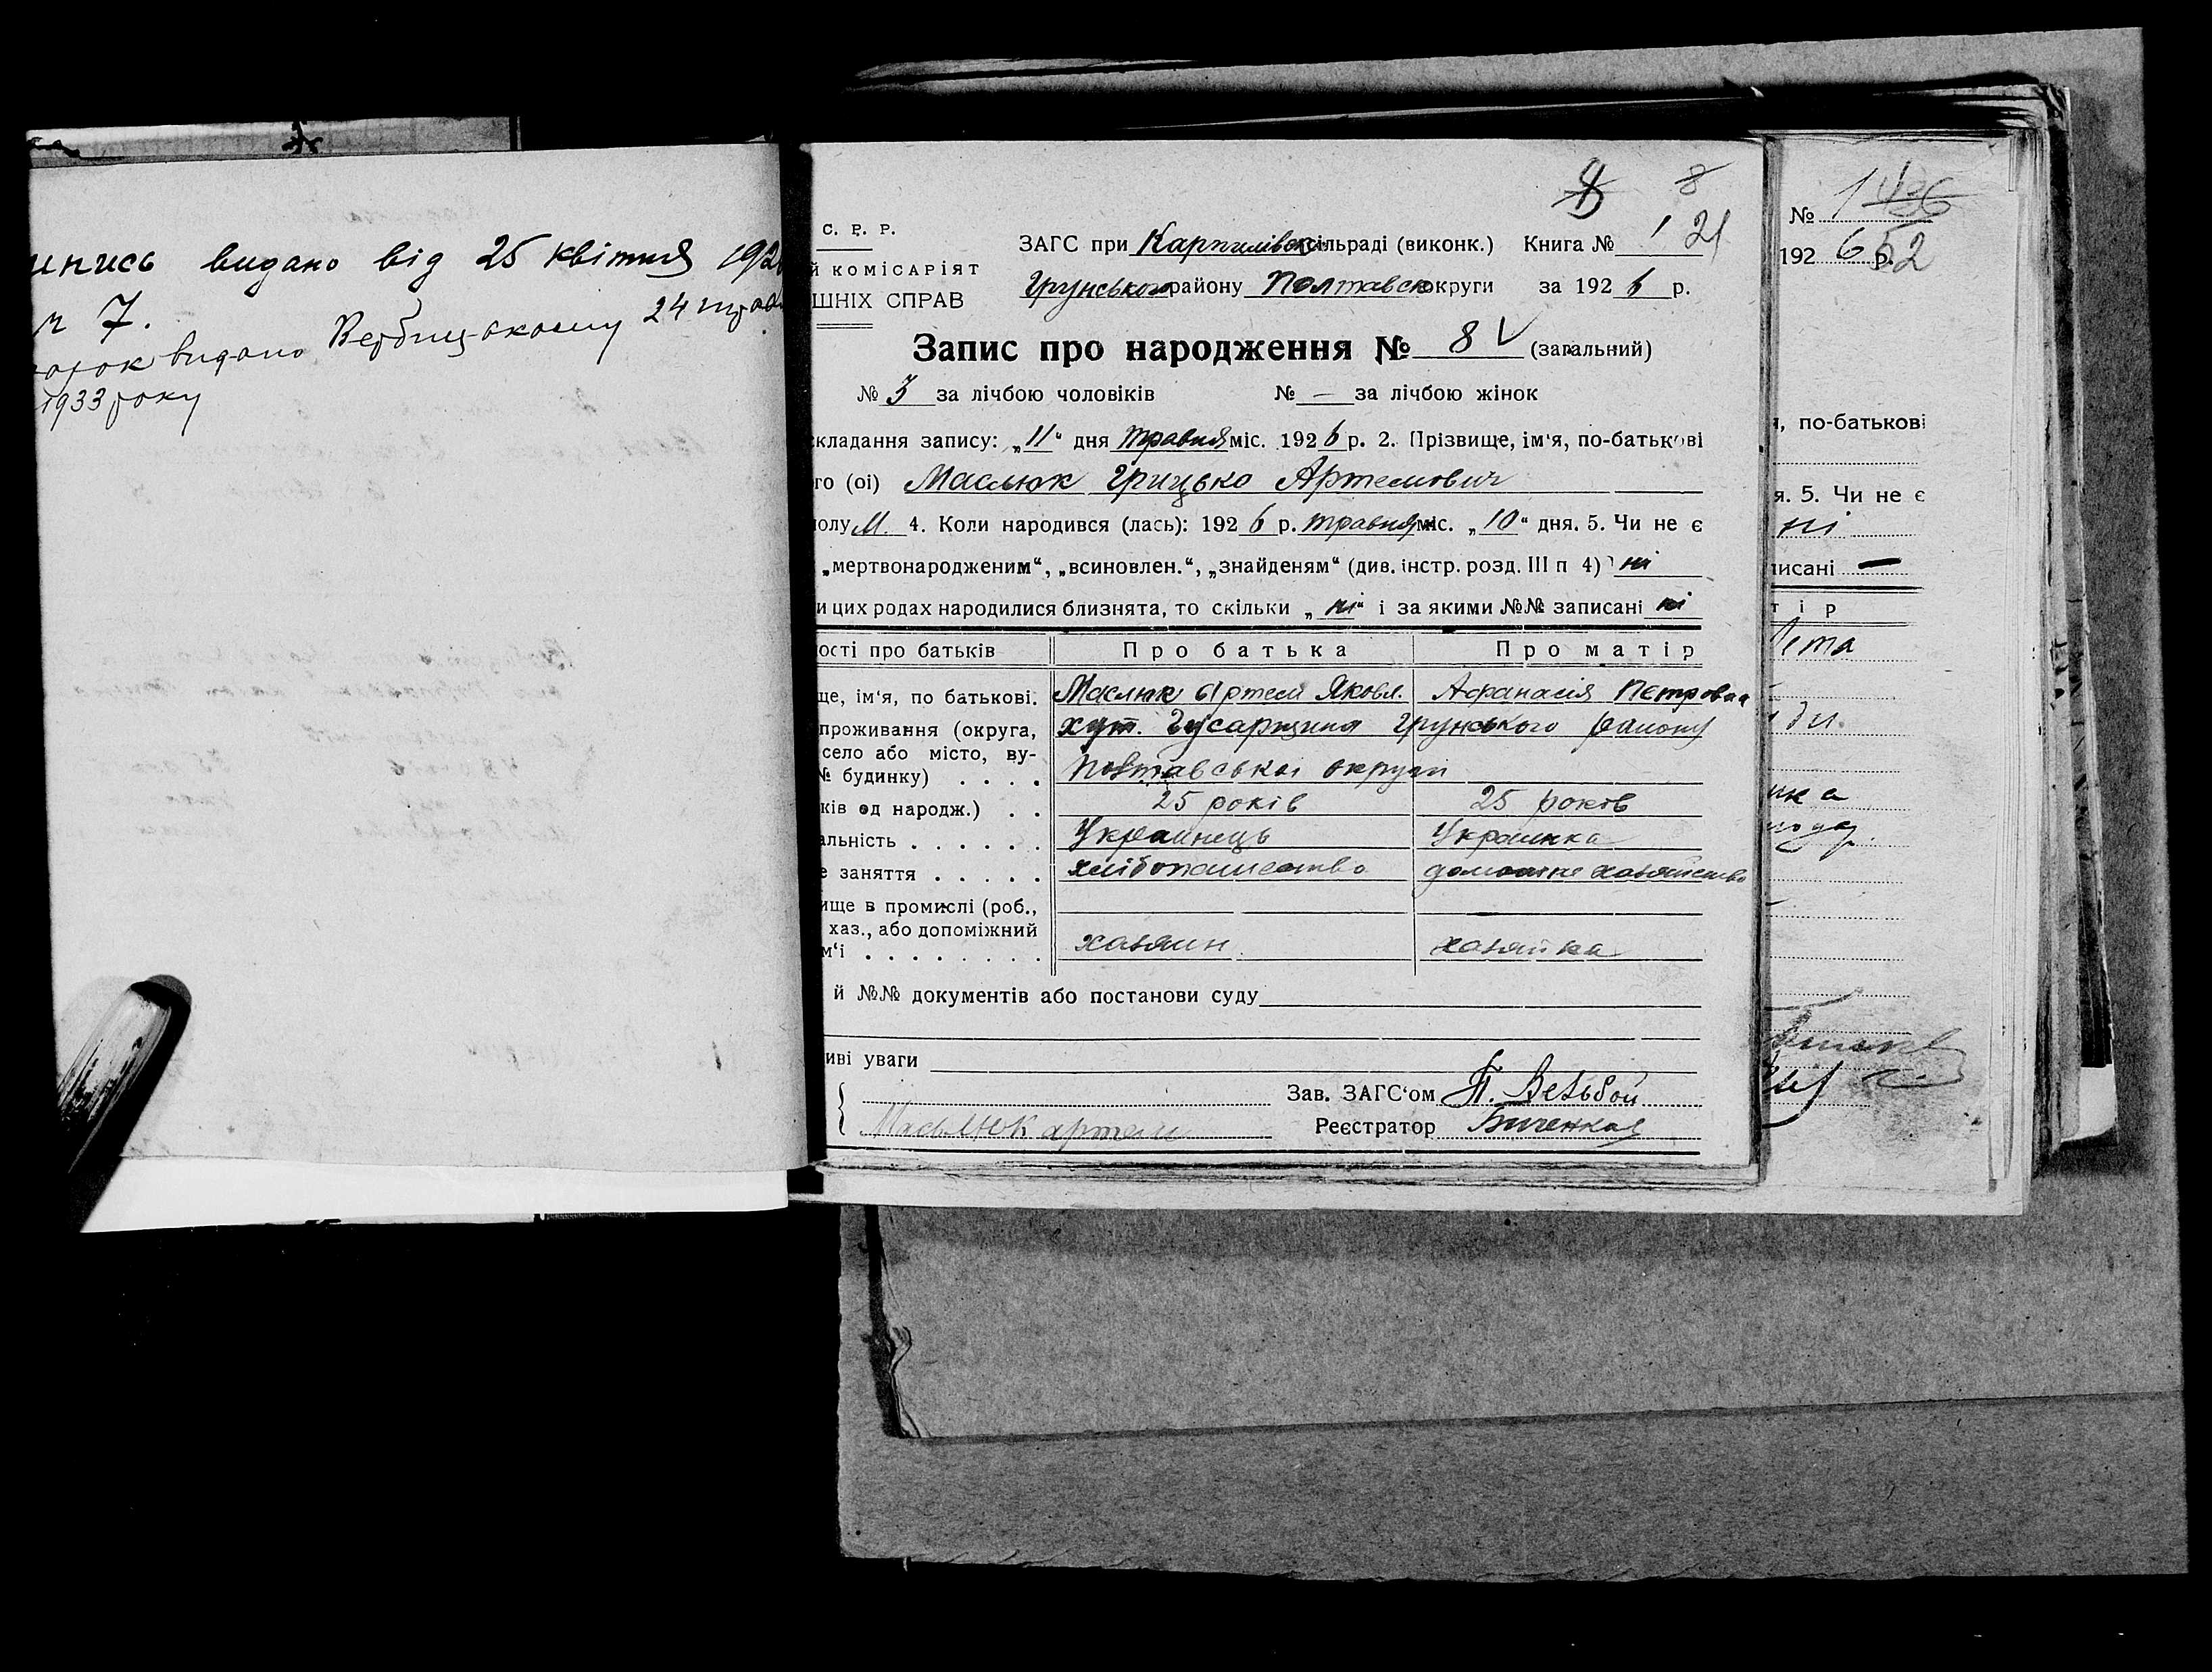 видано від 25 квітня 192
7.
видано Вербицькому 24
1933 року
8
1 21
С. Р. Р.
ЗАГС при Карпилівськ сільраді (виконк.) Книга №
й КОМІСАРІЯТ
Грунського району Полтавськ округи за 1926 р.
ШНІХ СПРАВ
Запис про народження № 8 V (загальний)
№ 3 за лічбою чоловіків № — за лічбою жінок
складання запису: „11“ дня травня міс. 1926 р. 2. Прізвище, ім'я, по-батькові
го (ої) Маслюк Грицько Артемович
полу М. 4. Коли народився (лась): 1926 р. травня міс. „10“ дня. 5. Чи не є
„мертвонародженим“, „всиновлен.“, „знайденям“ (див. інстр. розд. III п 4) ні
и цих родах народилися близнята, то скільки „ні“ і за якими №№ записані ні
ості про батьків Про батька Про матір
ще, ім'я, по батькові. Маслюк Артем Яковл. Афанасія Петровна
проживання (округа, хут. Гусарщина Грунського району
село або місто, ву-
№ будинку) . . . . Повтавської округи
ків од народж.) . . 25 років 25 років
альність . . . . . . Українець Українка
е заняття . . . . . хлібопашество домашнє хазяйство
ище в промислі (роб.,
хаз., або допоміжний
м'ї . . . . . . . . хазяин хазяйка
й №№ документів або постанови суду
иві уваги
Зав. ЗАГС'ом П.
Масьлюк артем Реєстратор
№ 1 436
1926 р. 52
я, по-батькові
я. 5. Чи не є
ні
писані —
тір